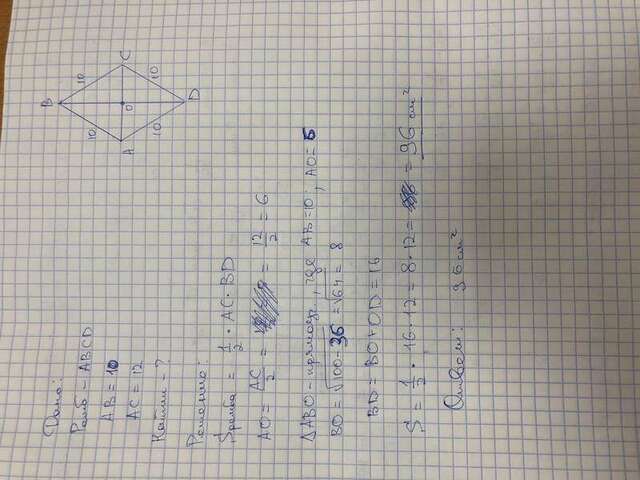 Дано:
Ромб - ABCD
AB = 10
AC = 12
Найти - ?
Решение:
Sромба = 1/2 · AC · BD
AO = AC/2 = = 12/2 = 6
ΔABO - прямоуг., где AB = 10; AO = 6
BO = √100-36 = √64 = 8
BD = BO + OD = 16
S = 1/2 · 16 · 12 = 8 · 12 = = 96 см²
Ответ: 96 см²
B
C
D
A
O
10
10
10
10